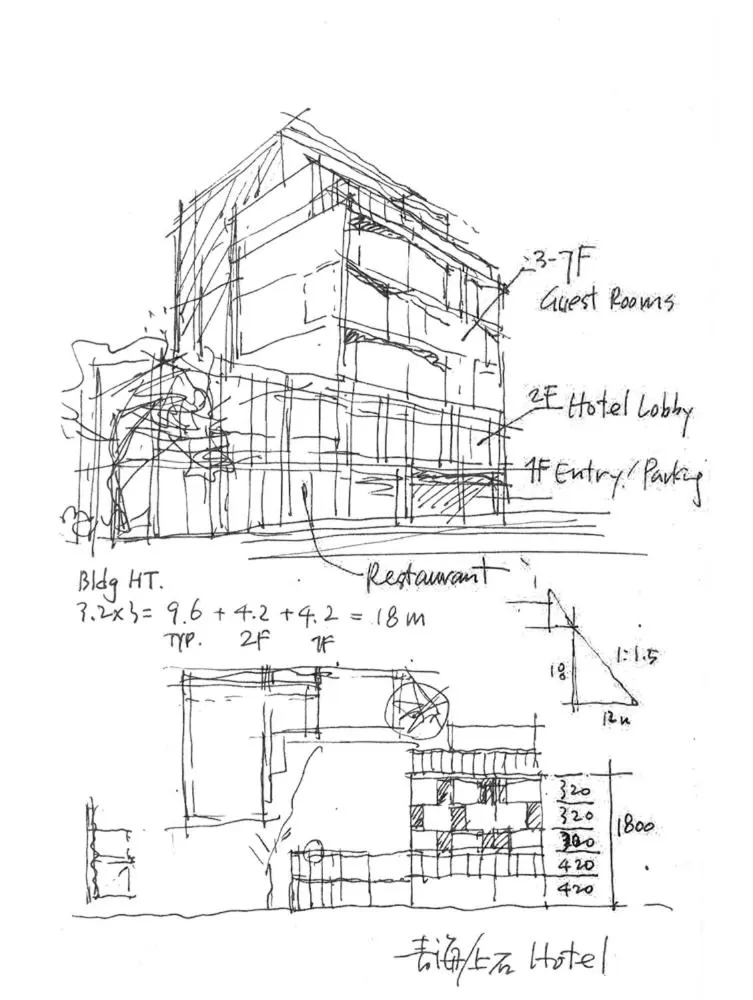 3-7F
Guest Rooms
2F Hotel Lobby
1F Entry/Parking
Restaurant
Bldg HT.
3.2x3= 9.6 + 4.2 + 4.2 = 18 m
TYP. 2F 1F
1
18
1:1.5
12m
320
320
320
420
420
1800
青海/上石 Hotel